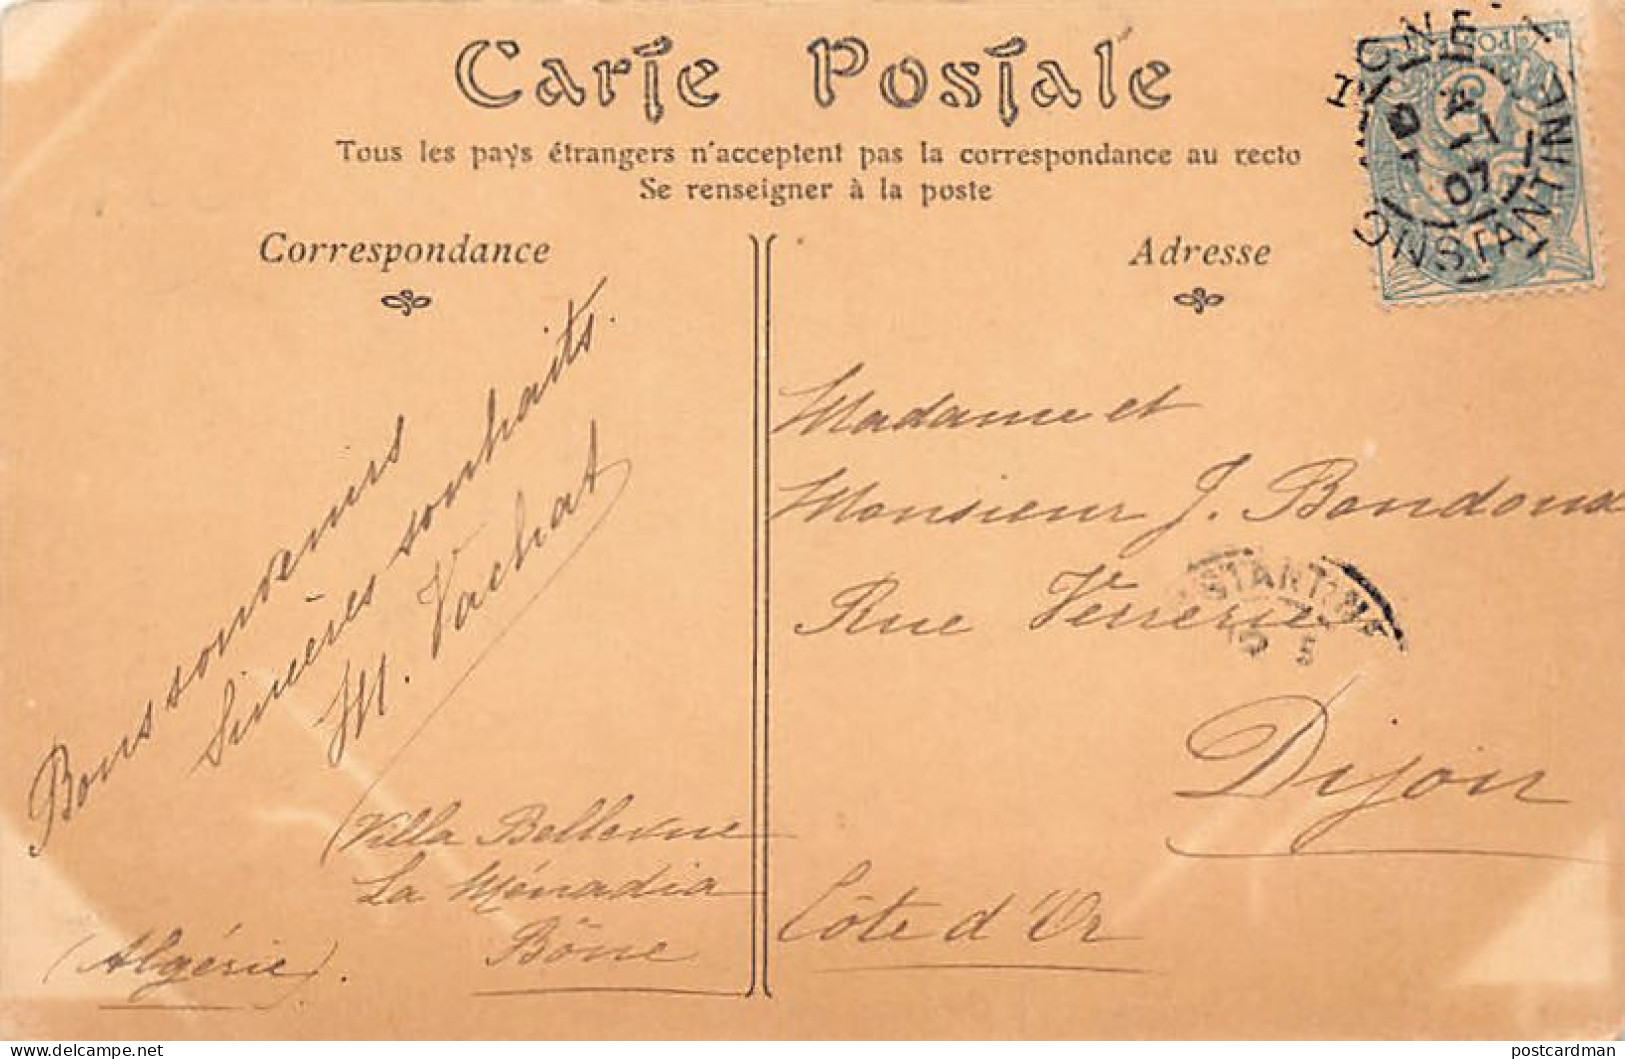 Carte Postale
Tous les pays étrangers n'acceptent pas la correspondance au recto
Se renseigner à la poste
Correspondance
Bons souvenirs
Sincères souhaits.
M. Vachat
Villa Bellevue
La Ménadia
Bône
(Algérie).
Adresse
Madame et
Monsieur J. Bondoux
Rue Verrerie
Dijon
Côte d'Or
BÔNE
07
CONSTANTINE
CONSTANTINE
5
delcampe.net
postcardman